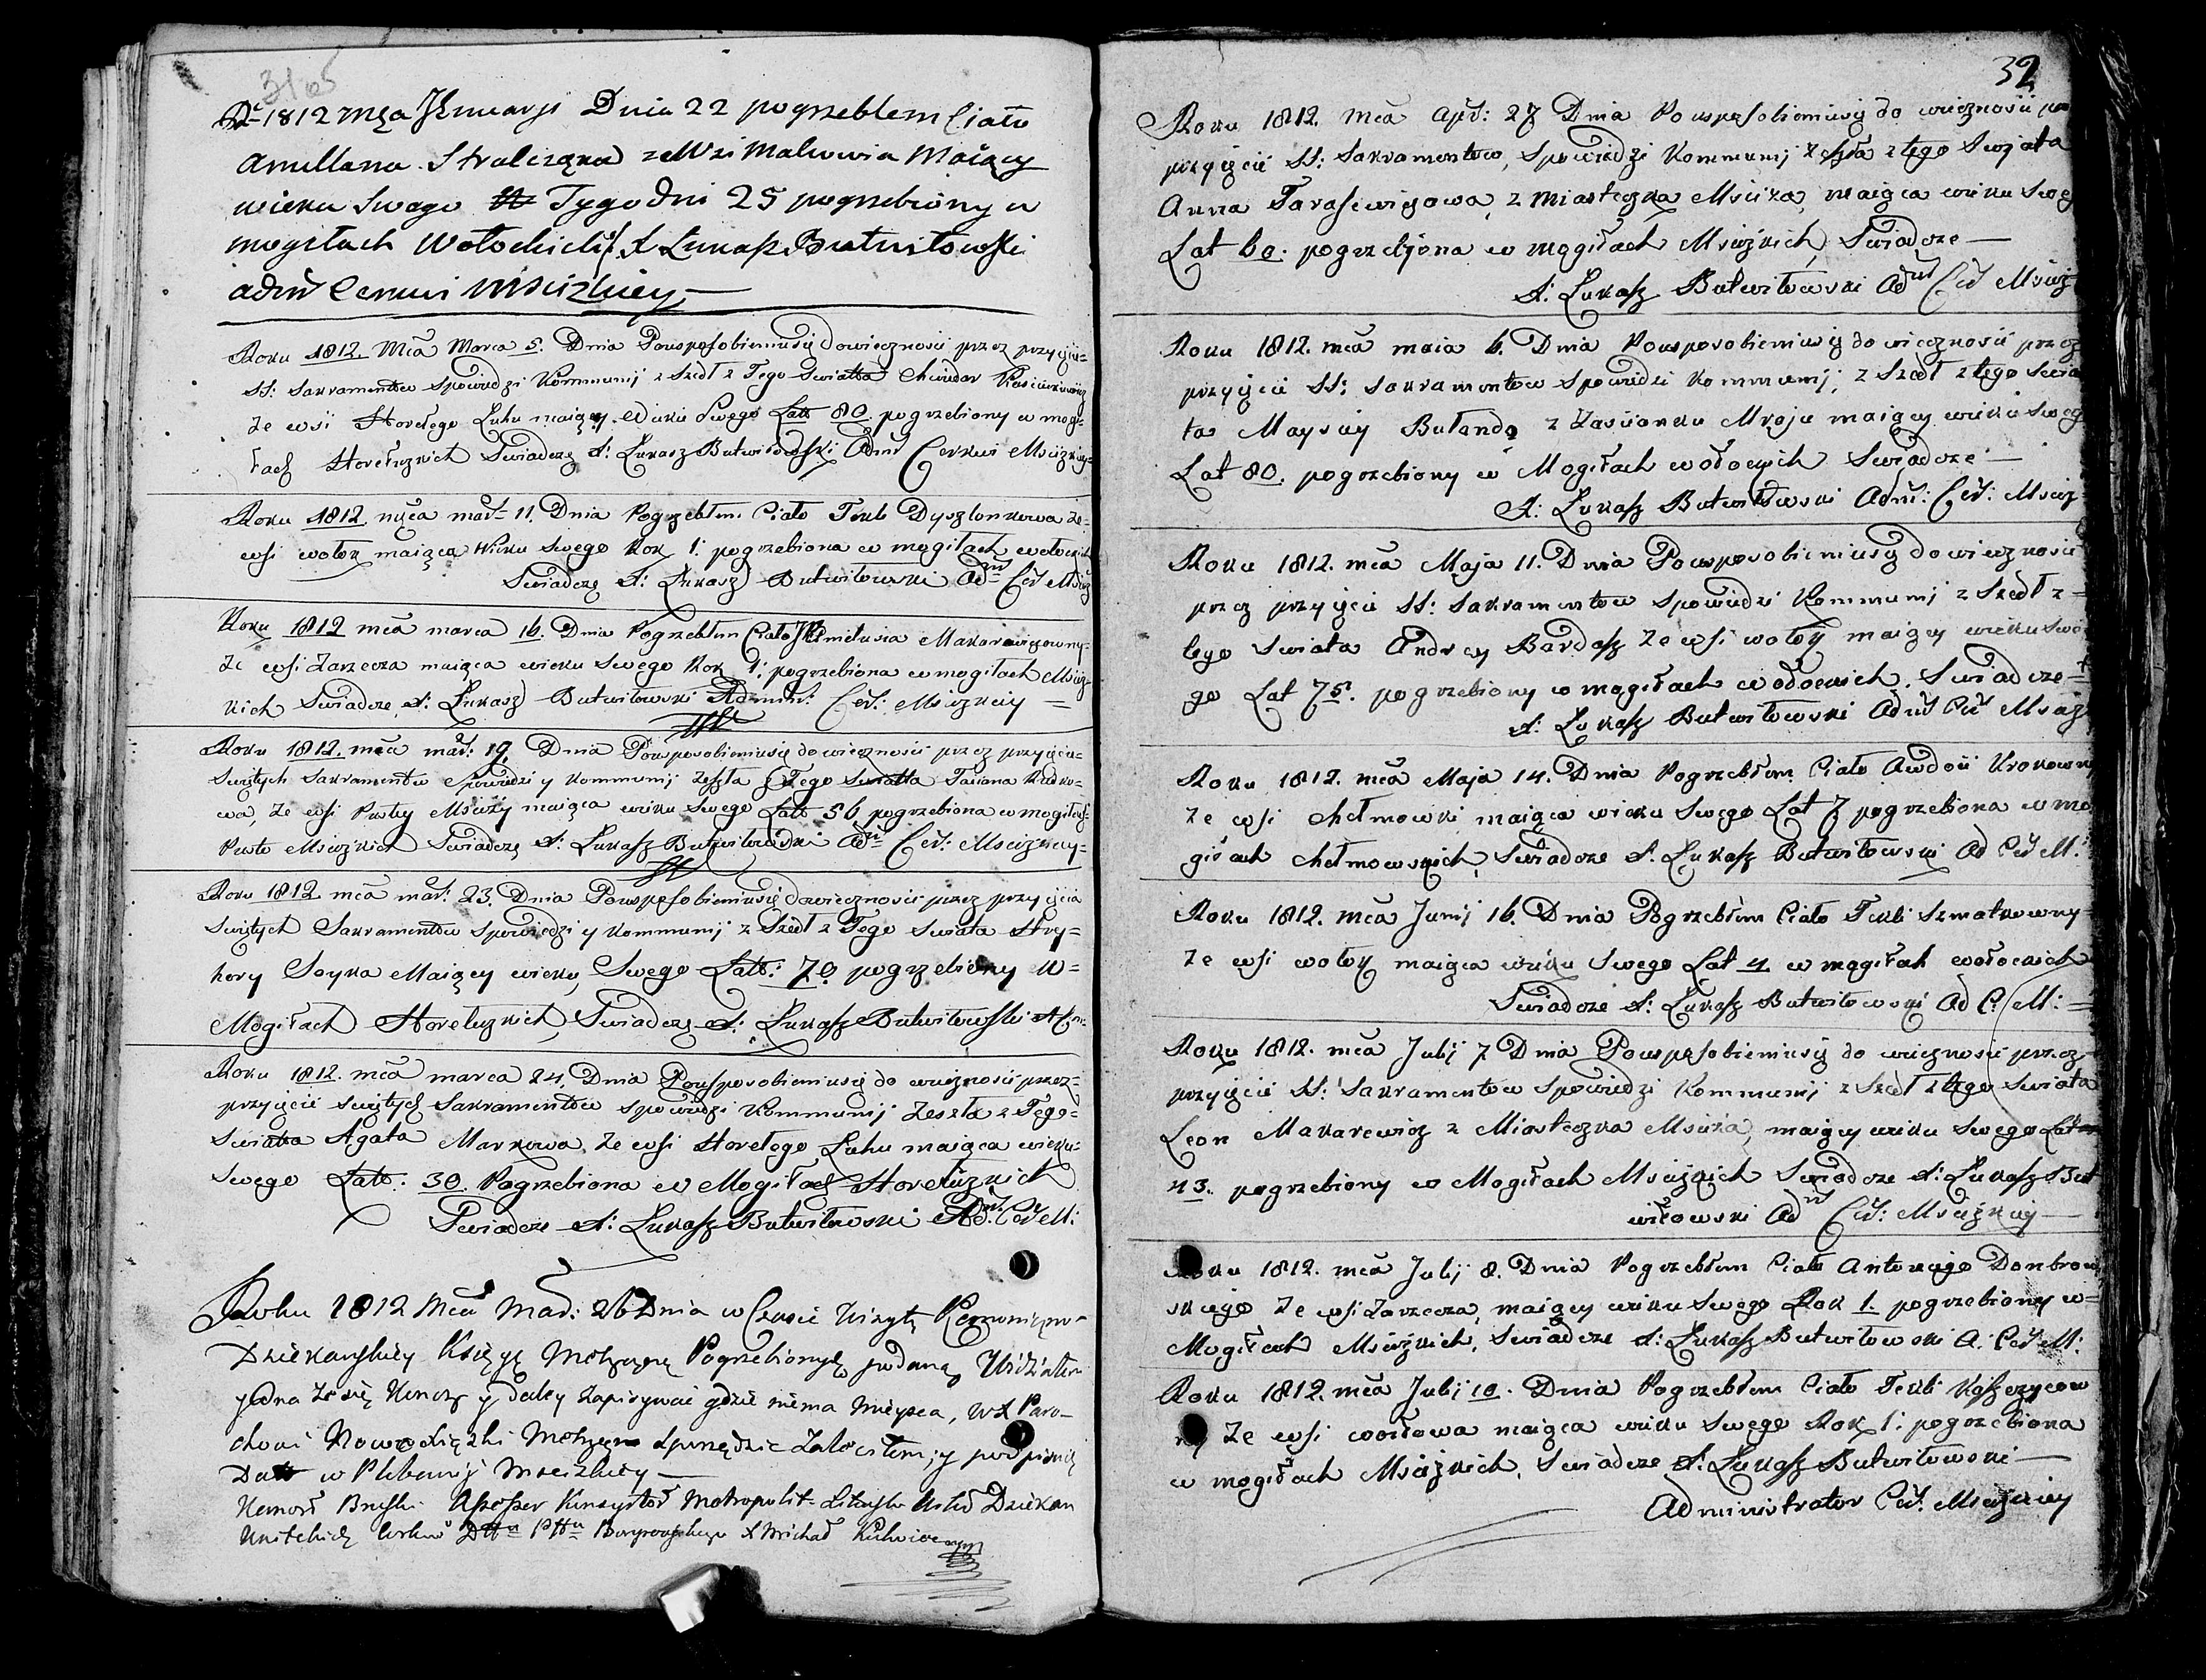 1812 Dnia 22 pogrzeblem Ciało
wieku Swego Tygodni 25 pogrzebiony w
mogiłach Wołockich X Łukasz Butwiłowski
Roku 1812. Mca Marca 5. Dnia Pousposobieniusię do wieczności przez przyjęcie
SS: Sakramentow Spowiedzi Kommunij z Szedł z Tego Swiata Chwedor
ze wsi Horełego Luhu maiący Wieku Swego Lat 80. pogrzebiony w mogi-
łach Horełuzkich Swiadczę X: Łukasz Butwiłowski Admr Cerkwi Mscizkiey
Roku 1812 mca mar: 11. Dnia Pogrzebłem Ciało Tekli Dyszlonkowa ze
wsi wołok maiąca Wieku Swego Rok 1: pogrzebiona w mogiłach wołockich
Swiadczę X: Łukasz Butwiłowski Ad Cer Msciż
Roku 1812 mca marca 16. Dnia Pogrzebłem Ciało Makarewiczowny
ze wsi Zarzecza maiąca wieku Swego Rok 1: pogrzebiona w mogiłach Msciż-
kich Swiadcze X: Łukasz Butwiłowski Admin: Cer: Mscizkiey
Roku 1812. mca mar: 19. Dnia Pousposobieniusię do wieczności przez przyjęcie
Swiętych Sakramentow Spowiedzi y Kommunij Zeszła z Tego Swiata Taciana
wa, ze wsi Pustey Msciży maiąca wieku Swego Lat 56 pogrzebiona w mogiłach
Pusto Msciżkich Swiadczę X: Łukasz Butwiłowski Ad Cer: Mscizkiey
Roku 1812 mca mar: 23. Dnia Pousposobieniusię do wieczności przez przyjęcia
Swiętych Sakramentow Spowiedzi y Kommunij z Szedł z Tego Swiata Hry-
hory Soyka Maiący wieku Swego Lat: 70 pogrzebiony w
Mogiłach Horełuzkich, Swiadczę X: Łukasz Butwiłowski
Roku 1812. mca marca 24. Dnia Pousposobieniusię do wieczności przez
przyjęcie Swiętych Sakramentow Spowiedzi Kommunij Zeszła z Tego
Swiata Agata Markowa. ze wsi Horełego Luhu maiąca wieku
Swego Lat: 30. Pogrzebiona w Mogiłach Horełuzkich
Swiadcze X: Łukasz Butwiłowski Ad: Cer M:
Roku 1812 Mca Mar: 26 Dnia w Czasie Wizyty
Dziekańskiey Księgę Metryczną Pogrzebionych podaną Widziałem
y daley zapisywać gdzie niema mieysca,
w Plebanij Mscizkiey
Assessor Dziekan
X Michał
32
Roku 1812. mca Apr: 27 Dnia Pousposobieniusię do wieczności
przyjęcie SS: Sakramentow, Spowiedzi Kommunij zeszła z tego Swiata
Anna Tarasewiczowa, z Miasteczka Msciża, maiąca wieku Sweg
Lat 60: pogrzebiona w mogiłach Msciżkich, Swiadcze
X: Łukasz Butwiłowski Ad Cer Msciż
Roku 1812. mca maia 6. Dnia Pousposobieniusię do wieczności przez
przyjęcie SS: Sakramentow Spowiedzi Kommunij, z Szedł z tego Swia
ta Maysiey Bułando z Zascianku Mroju maiący wieku Sweg
Lat 80. pogrzebiony w Mogiłach wołockich Swiadcze
X: Łukasz Butwiłowski Adm: Cer: Msciż
Roku 1812. mca Maja 11. Dnia Pousposobieniusię do wieczności
przez przyjęcie SS: Sakramentow Spowiedzi Kommunij z Szedł z
tego Swiata Andrey Bardasz ze wsi wołok maiący wieku Swe
go Lat 75. pogrzebiony w mogiłach wołockich. Swiadcze
X: Łukasz Butwiłowski Adm Cer Msciż
Roku 1812. mca Maja 14. Dnia Pogrzebłem Ciało Awdoci
ze wsi Chełmowki maiąca wieku Swego Lat 7 pogrzebiona w mo
giłach Chełmowskich, Swiadcze X: Łukasz Butwiłowski Ad Cer M:
Roku 1812. mca Junij 16. Dnia Pogrzebłem Ciało Tekli Szmatkowny
ze wsi wołok maiąca wieku Swego Lat 4 w mogiłach wołockich
Swiadcze X: Łukasz Butwiłowski Ad C. M:
Roku 1812. mca Julij 7 Dnia Pousposobieniusię do wieczności przez
przyjęcie SS: Sakramentow Spowiedzi Kommunij z Szedł z tego Swiata
Leon Makarewicz z Miasteczka Msciża, maiący wieku Swego Lat
43. pogrzebiony w Mogiłach Msciżkich Swiadcze X: Łukasz But
wiłowski Ad Cer: Msciżkiey
Roku 1812. mca Julij 8. Dnia Pogrzebłem Ciało Antoniego Dombrow
skiego ze wsi Zarzecza, maiący wieku Swego Rok 1. pogrzebiony w
Mogiłach Msciżkich, Swiadcze X: Łukasz Butwiłowski A. Cer M:
Roku 1812. mca Julij 10. Dnia Pogrzebłem Ciało Tekli
ny ze wsi maiąca wieku Swego Rok 1: pogrzebiona
w mogiłach Msciżkich, Swiadcze X: Łukasz Butwiłowski
Administrator Cer. Msciżkiey